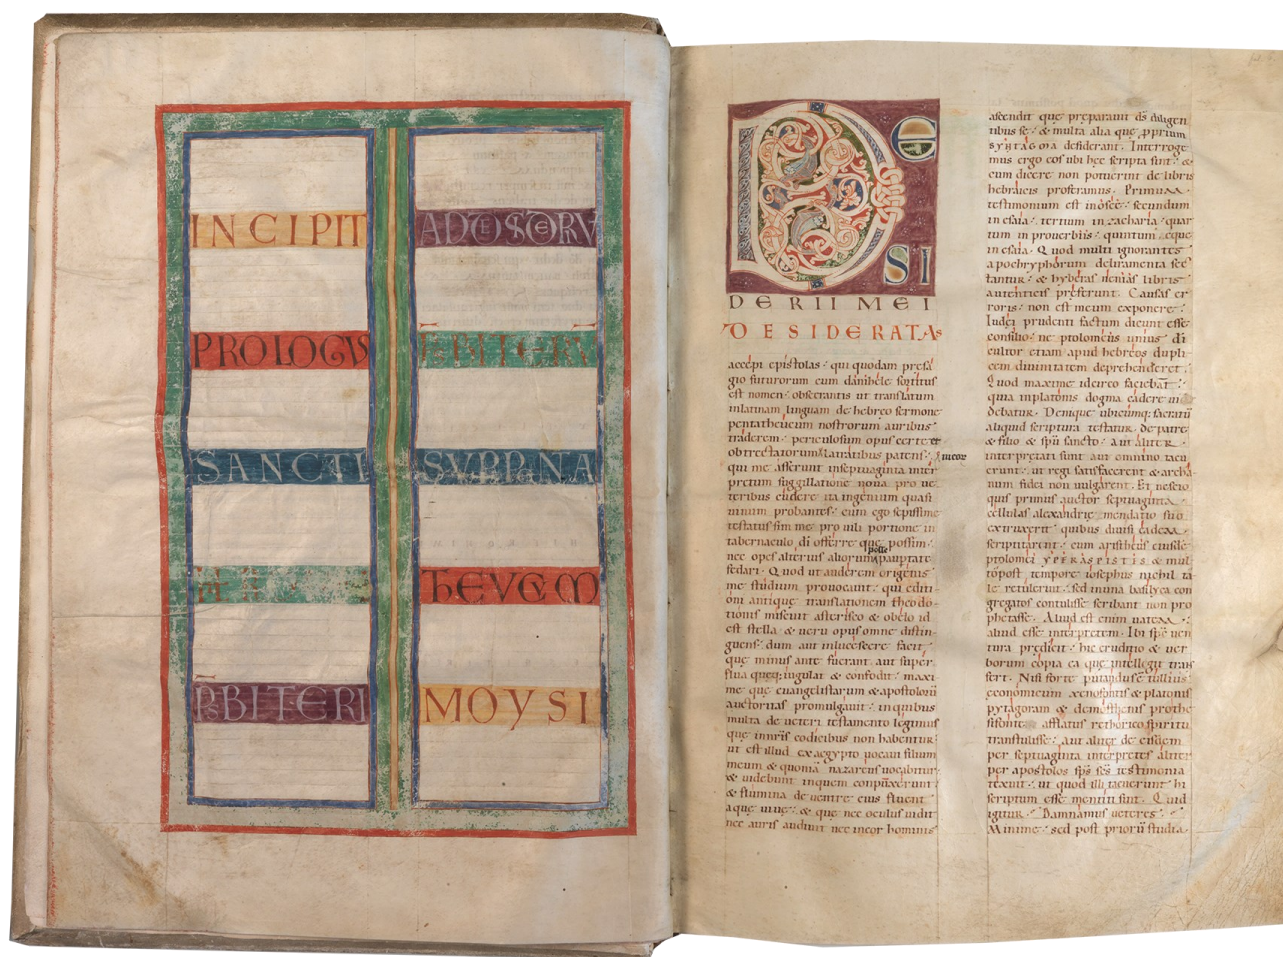 INCIPIT
PROLOGUS
SANCTI
HI
PRBITERI
AD DESIDERIU
PBITERU
SUPER NA
THEUCUM
MOYSI
DE
SI
DERII MEI
DESIDERATAS
accepi epistolas · qui quodam presa
gio futurorum cum danihele sortitus
est nomen · obsecrantis ut translatum
inlatinam linguam de hebreo sermone
pentatheucum nostrorum auribus
traderem · periculosum opus certe et
obtrectatorum latratibus patens ·
qui me asserunt inseptuaginta inter
pretum suggillatione noua pro ue
teribus cudere ita ingenium quasi
uinum probantes · cum ego sepissime
testatus sim me pro uili portione in
tabernaculo di offerre que possim ·
nec opes alterius aliorum paupertate
fedari · Quod ut auderem origenis
me studium prouocauit · qui editi
oni antique translationem theodo
tionis miscuit asterisco & obelo id
est stella & ueru opus omne distin
guens · dum aut inlucescere facit
que minus ante fuerant aut super
flua queq; iugulat & confodit · maxi
me que euangelistarum & apostolorū
auctoritas promulgauit · inquibus
multa de ueteri testamento legimus
que innris codicibus non habentur ·
ut est illud exaegypto uocaui filium
meum & quomā nazareus uocabitur
& uidebunt inquem conpunxerunt
& flumina de uentre eius fluent
aque uiue · & que nec oculus uidit
nec auris audiuit nec incor hominis
ascendit que preparauit ds diligen
tibus se · & multa alia que pprium
syntagma desiderant · Interroge
mus ergo eos ubi hec scripta sint · &
cum dicere non potuerint de libris
hebraicis proferamus · Primum
testimonium est inosee · secundum
in esaia · tertium in zacharia · quar
tum in prouerbiis · quintum eque
in esaia · Quod multi ignorantes
apochryphorum deliramenta sec
tantur · & hyberas nenias libris
autenticis preferunt · Causas er
roris non est meum exponere ·
Iudei prudenti factum dicunt esse
consilio · ne ptolomeus unius di
cultor etiam apud hebreos dupli
cem diuinitatem deprehenderet ·
Quod maxime idcirco faciebat
quia inplatonis dogma cadere ui
debatur · Denique ubicumq; sacratū
aliquid scriptura testatur · de patre
& filio & spū sancto · aut aliter
interpretati sunt aut omnino tacu
erunt · ut regi satisfacerent & archa
num fidei non uulgarent · Et nescio
quis primus auctor septuaginta
cellulas alexandrie mendatio suo
extruxerit quibus diuisi eadem
scriptitarent · cum aristheus eiusde
ptolomei yperaspistis & mul
to post tempore iosephus nichil ta
le retulerint · sed inuna basylica con
gregatos contulisse scribant non pro
phetasse · Aliud est enim uatem
aliud esse interpretem · Ibi sps uen
tura predicit · hic eruditio & uer
borum copia ea que intellegit trans
fert · Nisi forte putandus e tullius
economicum xenofontis & platonis
pytagoram & demosthenis prothe
sifonte · afflatus rethorico spiritu
transtulisse · aut aliter de eisdem
per septuaginta interpretes aliter
per apostolos sps scs testimonia
texuit · ut quod illi tacuerunt hi
scriptum esse mentiti sint · Quid
igitur · Damnamus ueteres
Minime · sed post priorū studia